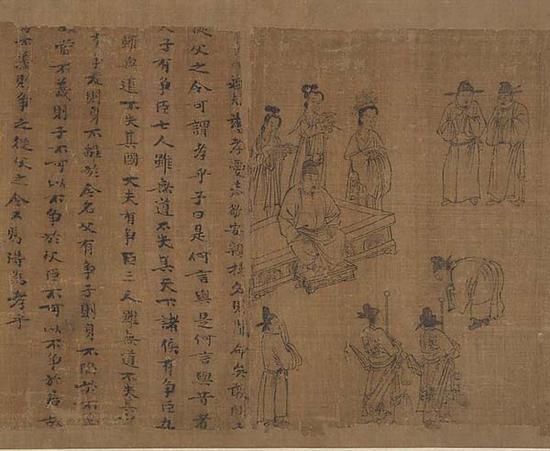 慈愛恭敬安親揚名則聞命矣敢問子
從父之令可謂孝乎子曰是何言與是何言與昔者
天子有争臣七人雖無道不失其天下諸侯有争臣五
人雖無道不失其國大夫有争臣三人雖無道不失其家
士有争友則身不離於令名父有争子則身不陷於不義
故當不義則子不可以不争於父臣不可以不争於君故
當不義則争之從父之令又焉得為孝乎